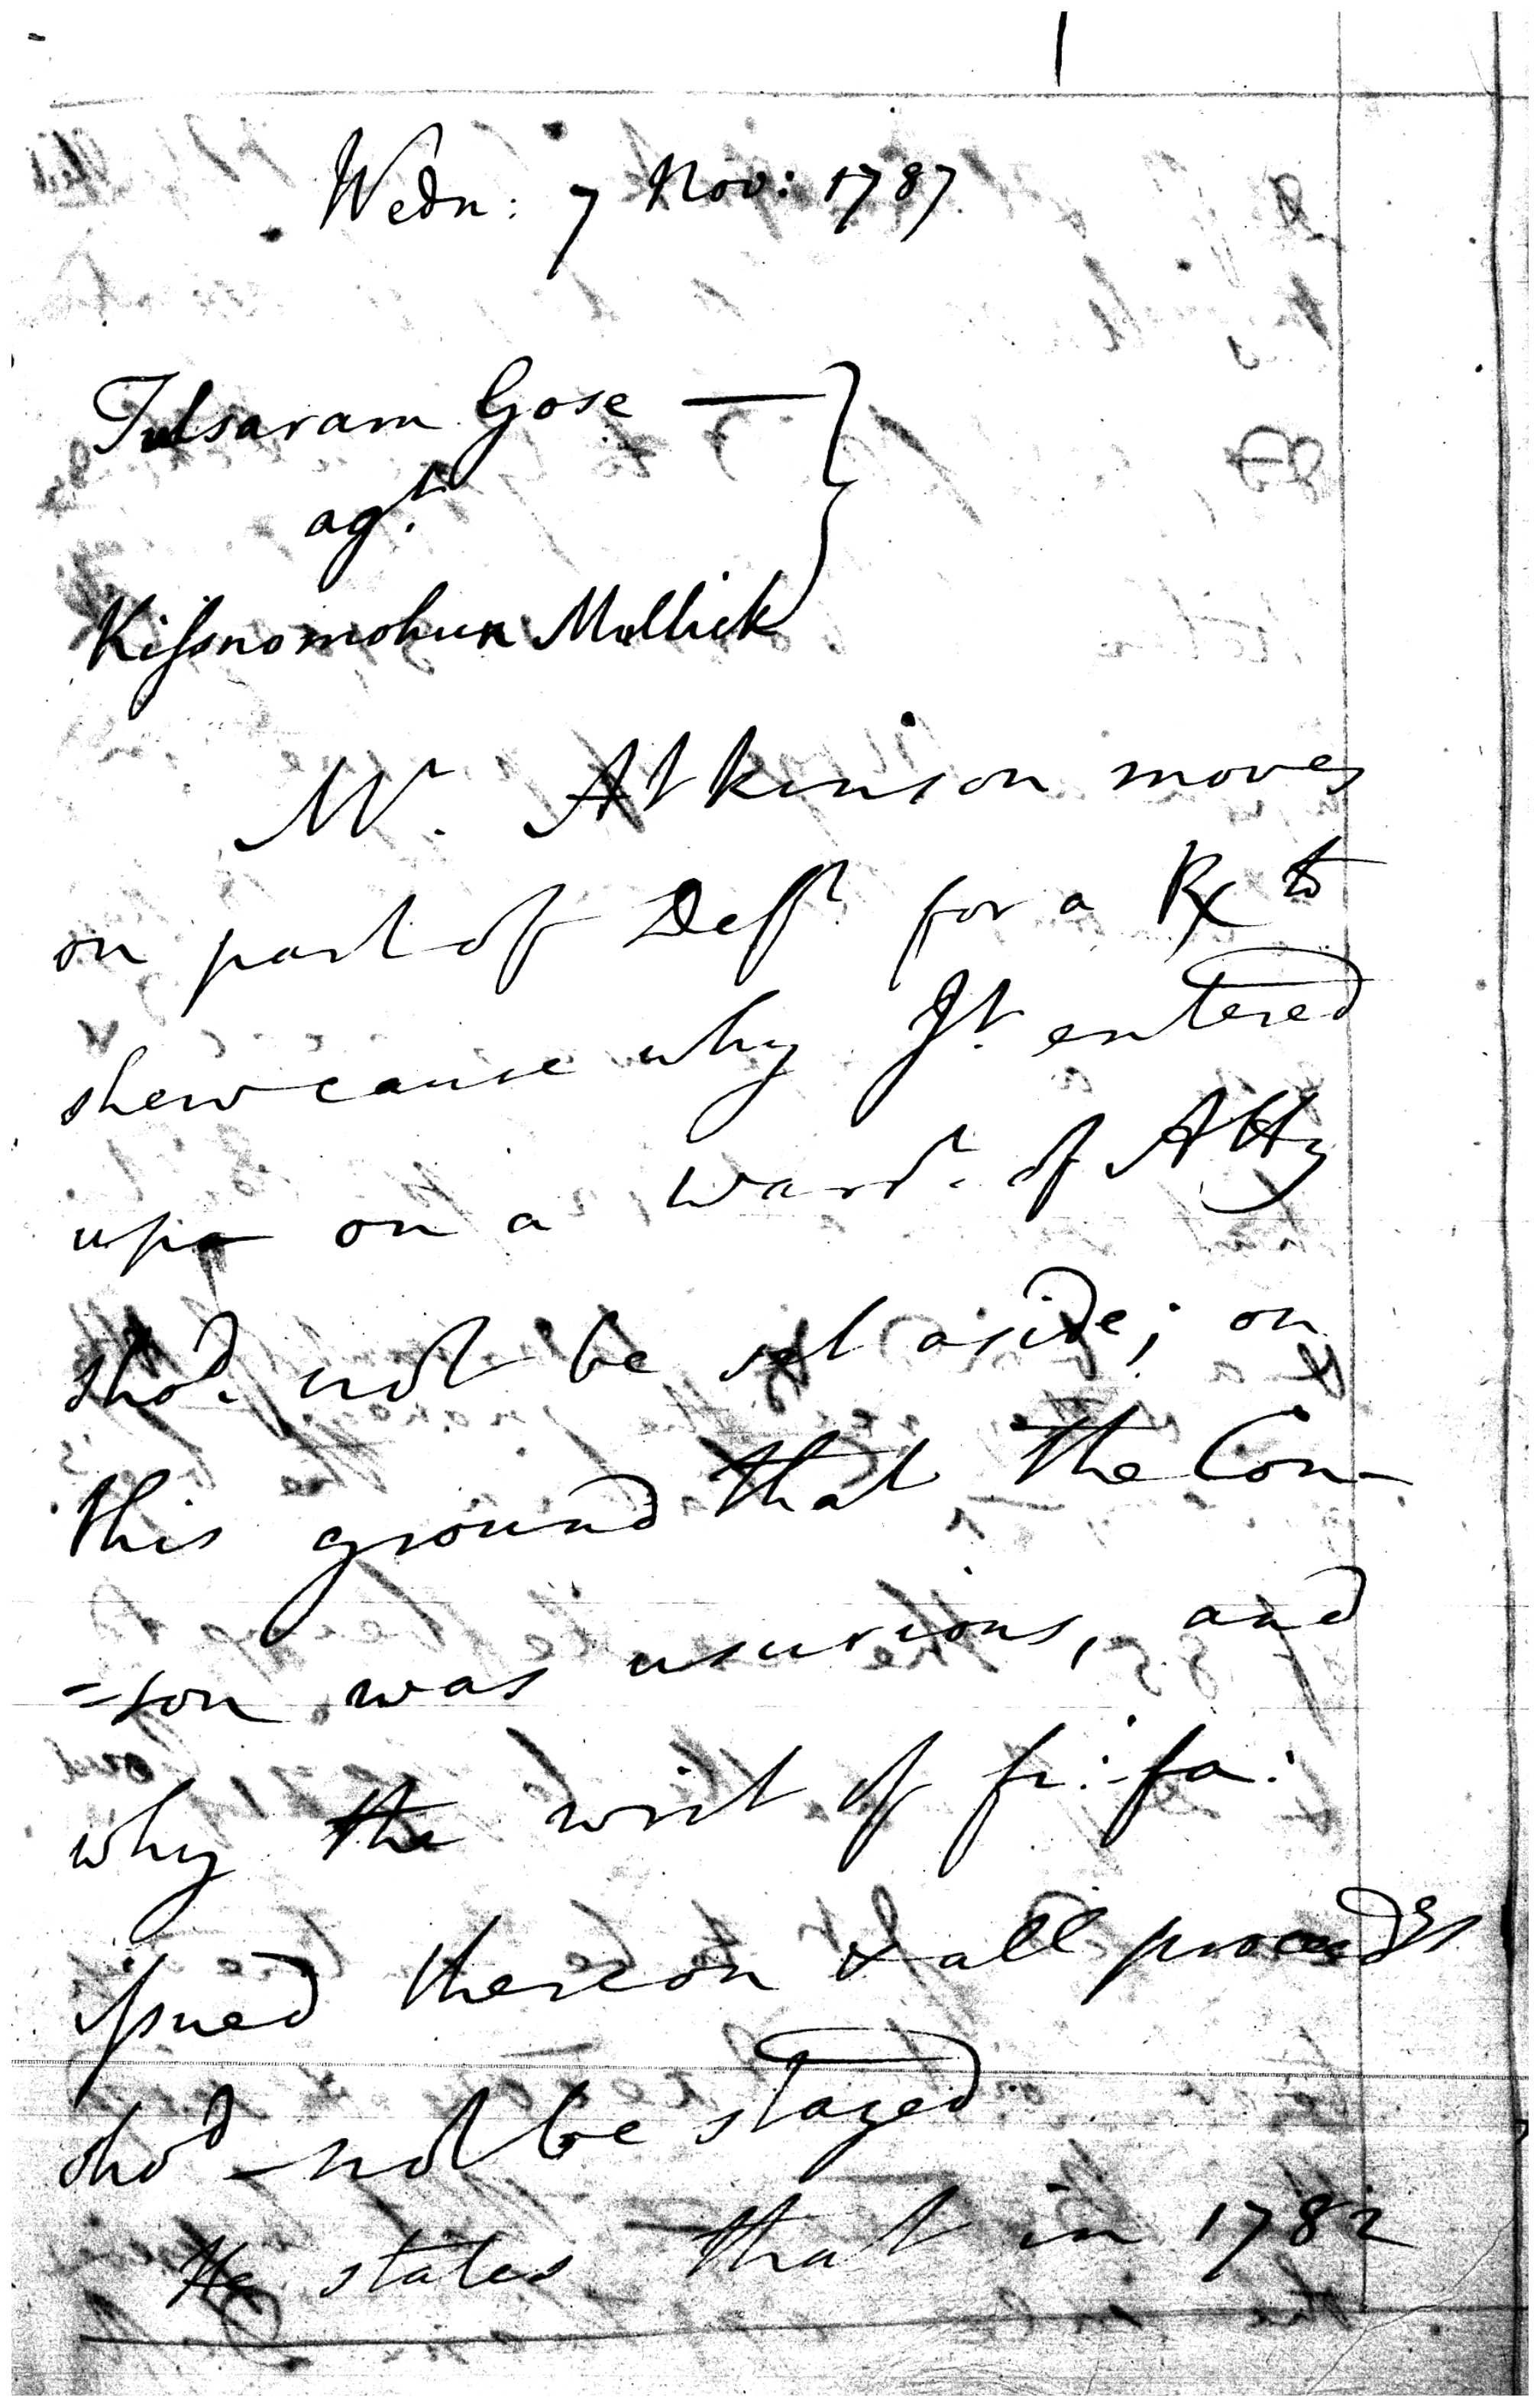 Wedn: 7 Nov: 1787
Tulsaram Gose —
agt.
Kissnomohun Mullick
Mr. Atkinson moves
on part of Deft. for a Rx to
shew cause why Jt. entered
up on a warrt. of Atty
shod. not be set aside; on
this ground that the Con-
=son was usurious, and
why the writ of fi: fa:
issued thereon & all proceedgs
shod. not be stayed
He states that in 1782